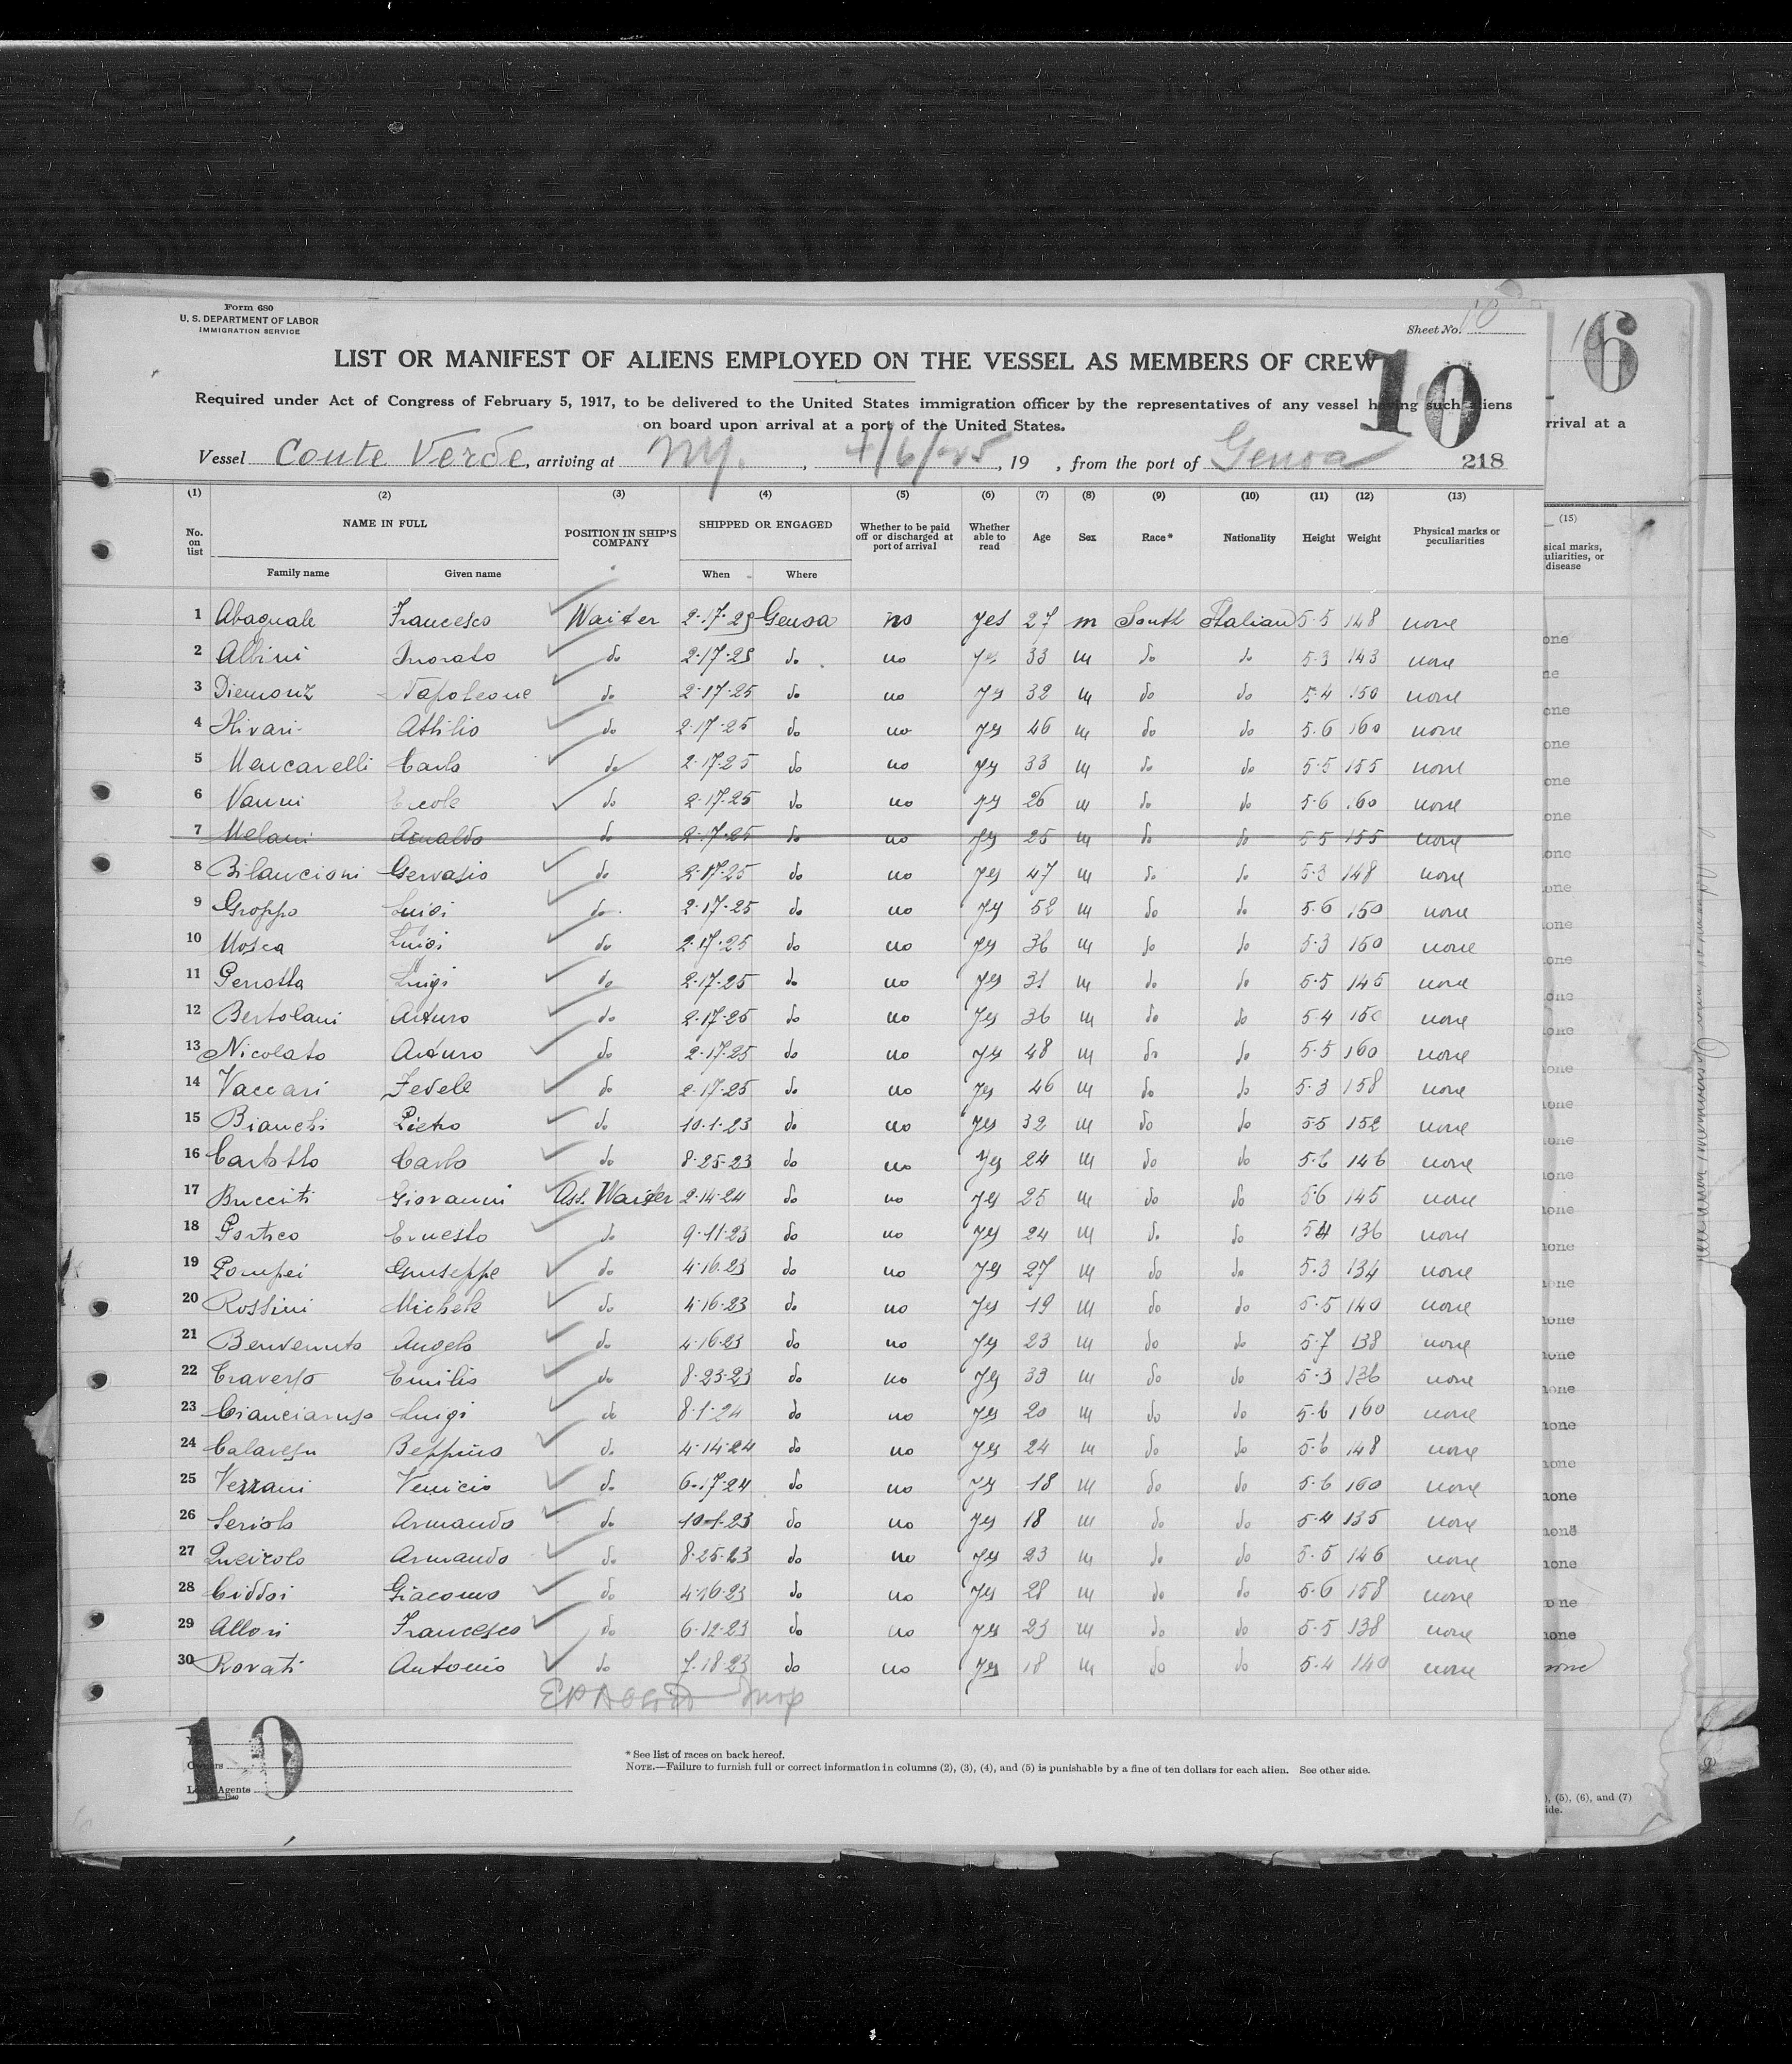 Form 680
U. S. DEPARTMENT OF LABOR
IMMIGRATION SERVICE
Sheet No. 10
LIST OR MANIFEST OF ALIENS EMPLOYED ON THE VESSEL AS MEMBERS OF CREW
10
6
Required under Act of Congress of February 5, 1917, to be delivered to the United States immigration officer by the representatives of any vessel having such aliens
on board upon arrival at a port of the United States.
rrival at a
Vessel Conte Verde, arriving at NY., 4/6/25, 19 , from the port of Genoa 218
(1) (2) (3) (4) (5) (6) (7) (8) (9) (10) (11) (12) (13) (15)
No. on list NAME IN FULL POSITION IN SHIP'S COMPANY SHIPPED OR ENGAGED Whether to be paid off or discharged at port of arrival Whether able to read Age Sex Race* Nationality Height Weight Physical marks or peculiarities
Family name Given name When Where
1 Abagnale Francesco Waiter 2-17-25 Genoa no yes 27 m South Italian 5-5 148 none
2 Albini Inorato do 2-17-25 do no yes 33 m do do 5-3 143 none
3 Diemonz Napoleone do 2-17-25 do no yes 32 m do do 5-4 150 none
4 Hivari Athilio do 2-17-25 do no yes 46 m do do 5-6 160 none
5 Mencarelli Carlo do 2-17-25 do no yes 33 m do do 5-5 155 none
6 Vanni Ercole do 2-17-25 do no yes 26 m do do 5-6 160 none
7 Melani Arnaldo do 2-17-25 do no yes 25 m do do 5-5 155 none
8 Bilancioni Gervasio do 2-17-25 do no yes 47 m do do 5-3 148 none
9 Groppo Luigi do 2-17-25 do no yes 52 m do do 5-6 150 none
10 Mosca Luigi do 2-17-25 do no yes 36 m do do 5-3 150 none
11 Perrotta Luigi do 2-17-25 do no yes 31 m do do 5-5 145 none
12 Bertolani Arturo do 2-17-25 do no yes 36 m do do 5-4 150 none
13 Nicolato Arturo do 2-17-25 do no yes 48 m do do 5-5 160 none
14 Vaccari Fedele do 2-17-25 do no yes 46 m do do 5-3 158 none
15 Bianchi Pietro do 10-1-23 do no yes 32 m do do 5-5 152 none
16 Cartotto Carlo do 8-25-23 do no yes 24 m do do 5-6 146 none
17 Bucciti Giovanni Ass. Waiter 2-14-24 do no yes 25 m do do 5-6 145 none
18 Portico Ernesto do 9-11-23 do no yes 24 m do do 5-4 136 none
19 Pompei Giuseppe do 4-16-23 do no yes 27 m do do 5-3 134 none
20 Rossini Michele do 4-16-23 do no yes 19 m do do 5-5 140 none
21 Benvenuto Angelo do 4-16-23 do no yes 23 m do do 5-7 138 none
22 Traverso Emilio do 8-23-23 do no yes 33 m do do 5-3 136 none
23 Cianciaruso Luigi do 8-1-24 do no yes 20 m do do 5-6 160 none
24 Calavesu Beppino do 4-14-24 do no yes 24 m do do 5-6 148 none
25 Vezzani Venicio do 6-17-24 do no yes 18 m do do 5-6 160 none
26 Seriolo Armando do 10-1-23 do no yes 18 m do do 5-4 135 none
27 Queirolo Armando do 8-25-23 do no yes 23 m do do 5-5 146 none
28 Ciddoi Giacomo do 4-16-23 do no yes 28 m do do 5-6 158 none
29 Allori Francesco do 6-12-23 do no yes 23 m do do 5-5 138 none
30 Rovati Antonio do 7-18-23 do no yes 18 m do do 5-4 140 none
10
Owners
Local Agents
* See list of races on back hereof.
NOTE.—Failure to furnish full or correct information in columns (2), (3), (4), and (5) is punishable by a fine of ten dollars for each alien. See other side.
), (5), (6), and (7)
ide.